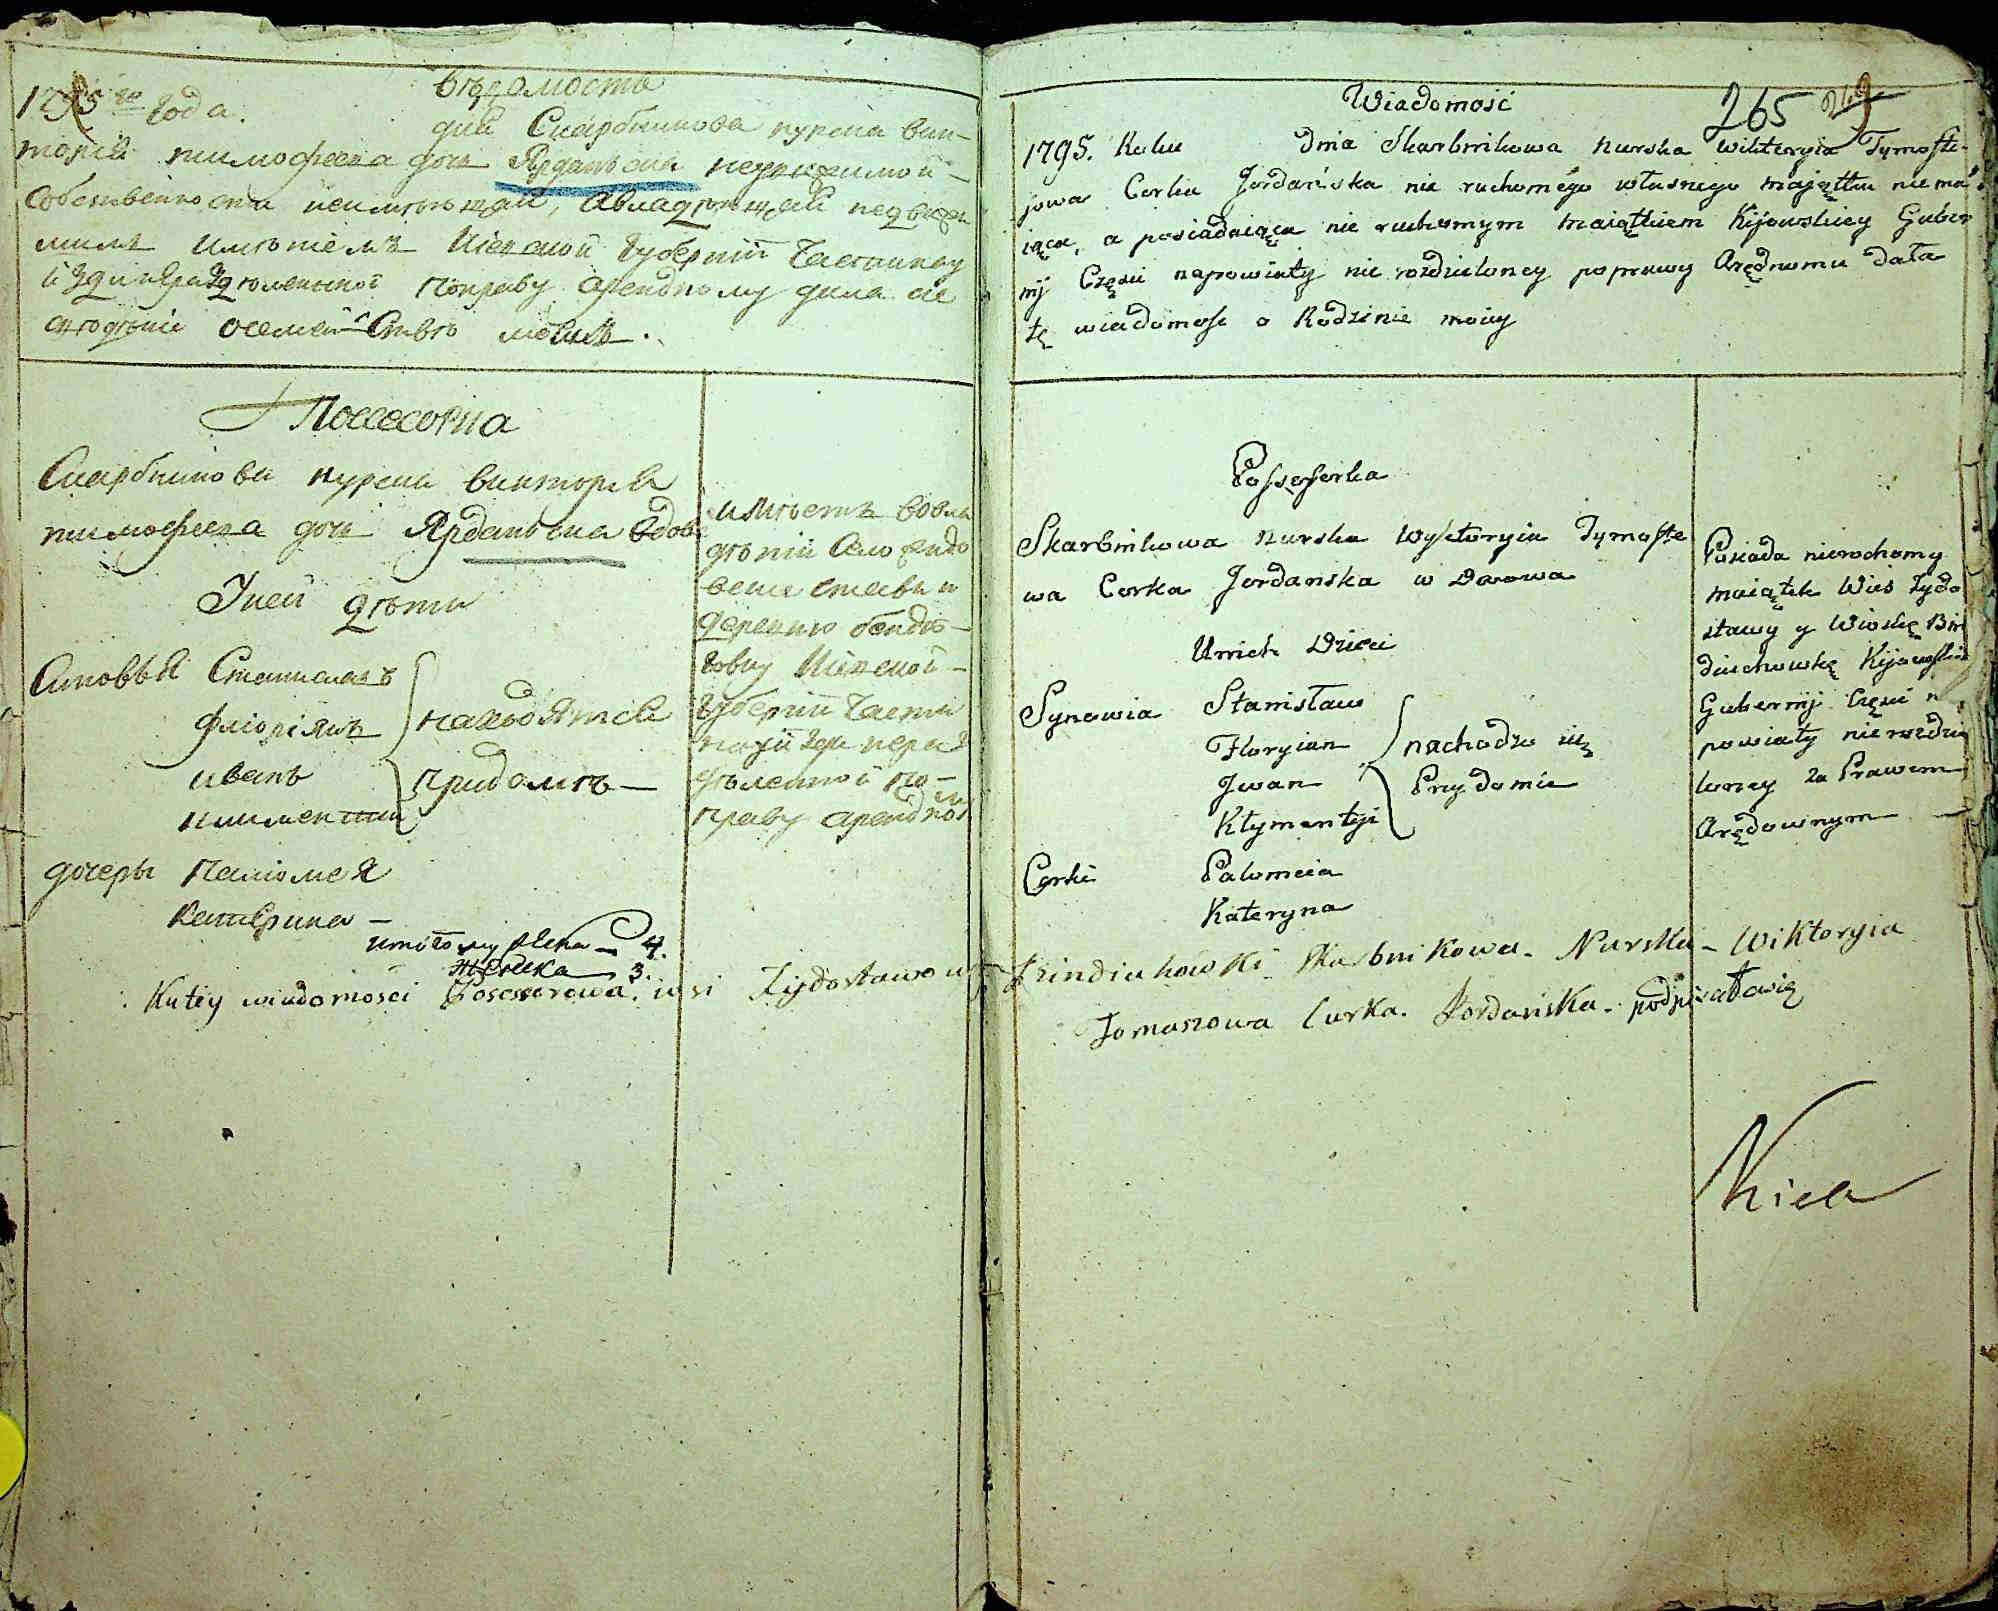 Вѣдомость
1795го года.
дня Скарбникова нурска Вик-
торія тимофеева дочь Ярданьска недвижимой
собственности неимѣющая, авладѣющая недвижи
мимъ имѣніемъ Кіевской губерніи Части
поправу арендному дала сіе
свѣдѣніе осемействѣ моемъ.
Поссесорка
Скарбникова нурска викторія
тимофеева дочь Ярданьска вдова
Уней дѣти
Сиповья Станиславъ
Флоріянъ
иванъ
климентій
находятся
придомѣ
дочеры Паліомея
Катерина
имѣетъ вовла
дѣніи село жидо
веше ставы и
деревню бендю-
говку Кіевской
губерніи Части
поправу арендно
итого мужеска 4.
женска 3.
Kutey wiadomosci Posesorowa wsi Zydostawow y
Wiadomość
265 249
1795. Roku Dnia Skarbnikowa nurska Wikteryia Tymofie-
jowa Corka Jordańska nie ruchomego własnego majątku nie ma
iąca, a posiadaiąca nie ruchomym maiątkiem Kijowskiey Guber
nij Części napowiaty nie rozdzieloney poprawu Arędnomu Dała
tę wiadomość o Rodzinie moiey
Possessorka
Skarbnikowa nurska Wyktoryia Tymofie
wa Corka Jordańska w Dowowa
Unieh Dzieci
Synowia Stanisław
Floryian
Jwan
Kłymentyi
nachodzo się
Pry Domie
Corki Palomeia
Kateryna
Posiada nieruchomy
maiątek Wieś Zydo
stawy y Wioskę Bin
diuchowkę Kijowskie
Gubernij Części n
powiaty nierozdzie
loney za Prawem
Arędownym
Bindiuhowki Skarbnikowa. Nurska - Wiktoryia
Tomaszowa Curka. Jordańska. podpisałasię
Nica